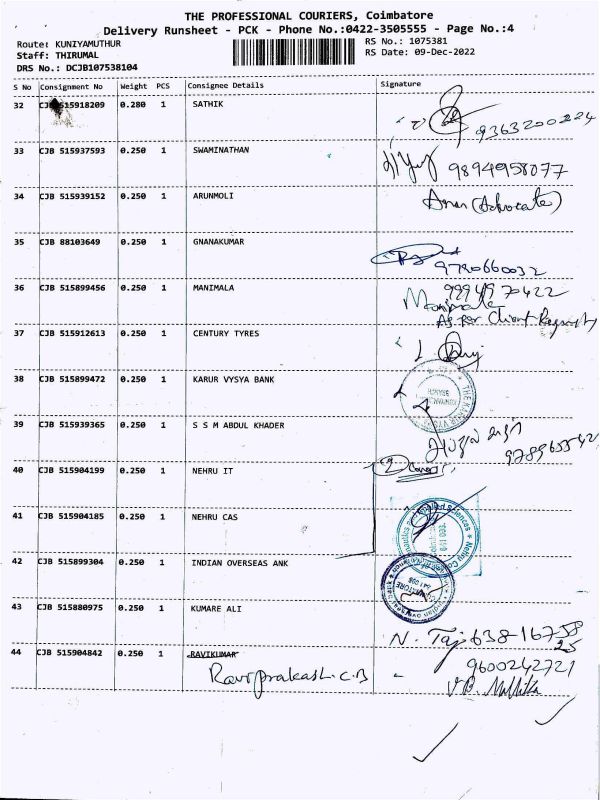 THE PROFESSIONAL COURIERS, Coimbatore
Delivery Runsheet - PCK - Phone No.:0422-3505555 - Page No.:4
Route: KUNIYAMUTHUR RS No.: 1075381
Staff: THIRUMAL RS Date: 09-Dec-2022
DRS No.: DCJB107538104
S No Consignment No Weight PCS Consignee Details Signature
32 CJB 515918209 0.280 1 SATHIK
9363200224
33 CJB 515937593 0.250 1 SWAMINATHAN
9894958077
34 CJB 515939152 0.250 1 ARUNMOLI
Arun (Advocate)
35 CJB 88103649 0.250 1 GNANAKUMAR
9790660032
36 CJB 515899456 0.250 1 MANIMALA 9994970422
Manimala
As per Client Request
37 CJB 515912613 0.250 1 CENTURY TYRES
38 CJB 515899472 0.250 1 KARUR VYSYA BANK
39 CJB 515939365 0.250 1 S S M ABDUL KHADER
40 CJB 515904199 0.250 1 NEHRU IT
2 Covers
41 CJB 515904185 0.250 1 NEHRU CAS
42 CJB 515899304 0.250 1 INDIAN OVERSEAS ANK
43 CJB 515880975 0.250 1 KUMARE ALI
N. Taj 638-16758
25
44 CJB 515904842 0.250 1 RAVIKUMAR 9600242721
Raviprakash. C.B